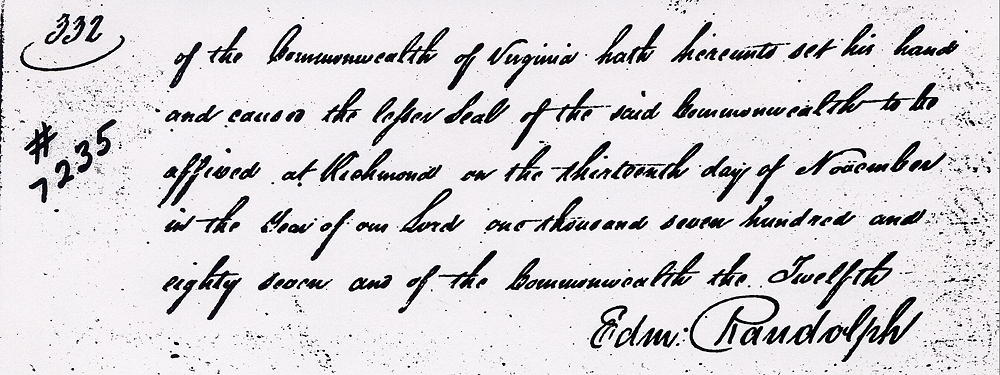 332
of the Commonwealth of Virginia hath hereunto set his hand
and caused the lesser Seal of the said Commonwealth to be
# 7235
affixed at Richmond on the thirteenth day of November
in the Year of our Lord one thousand seven hundred and
eighty seven and of the Commonwealth the Twelfth
Edm: Randolph